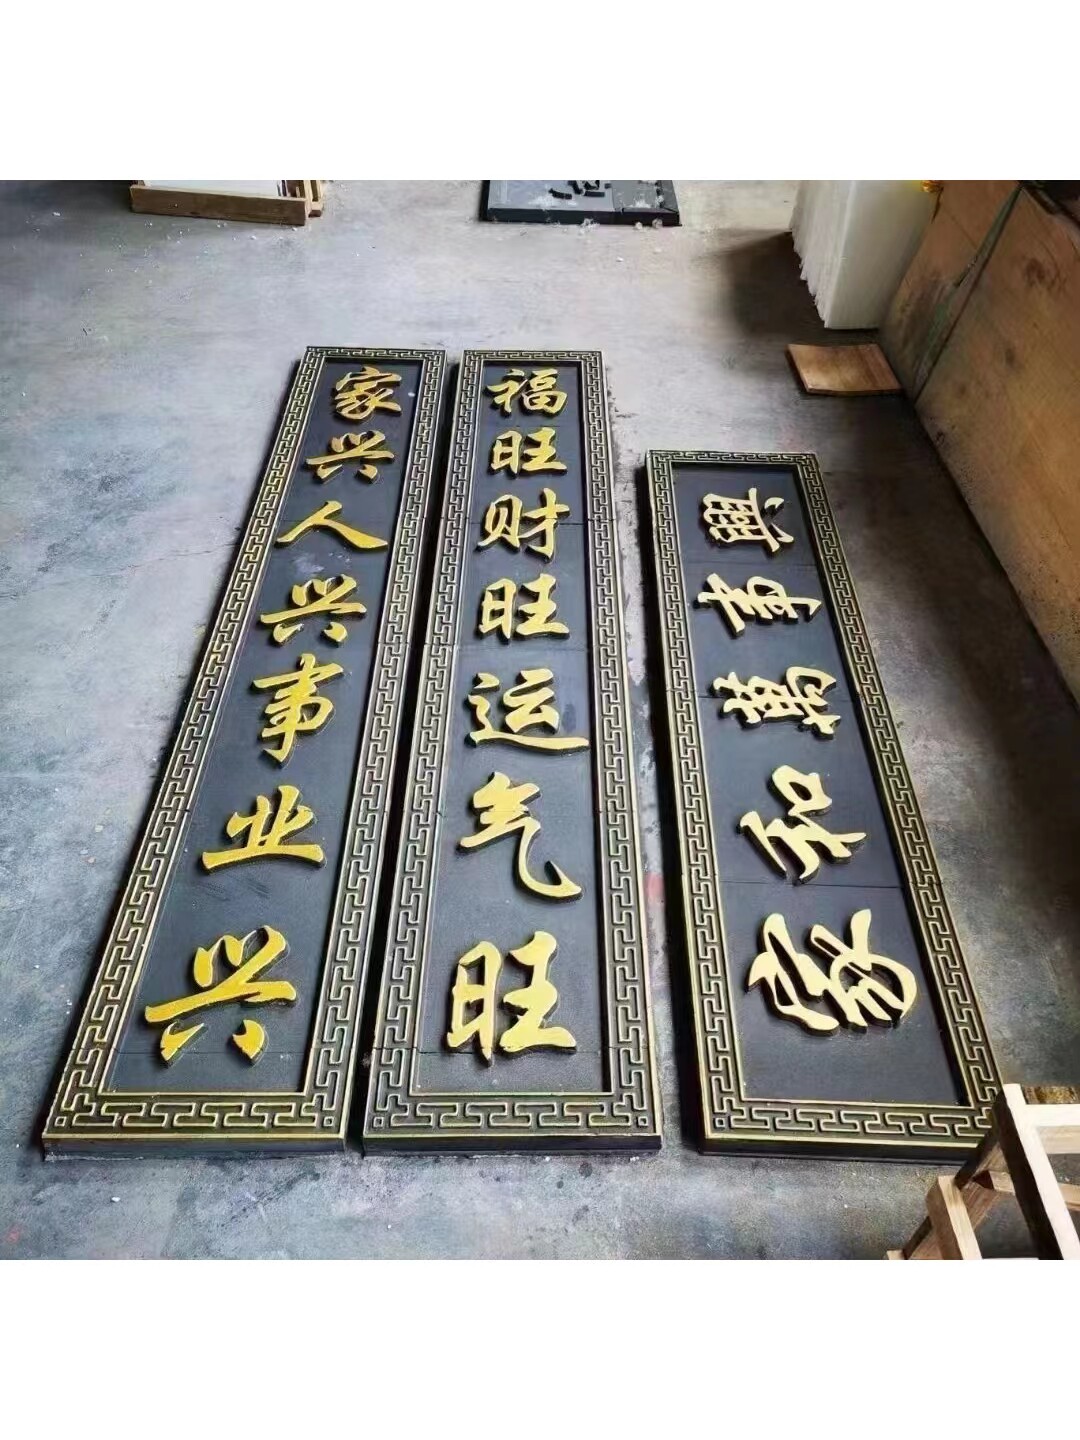 家兴人兴事业兴
福旺财旺运气旺
家和萬事興